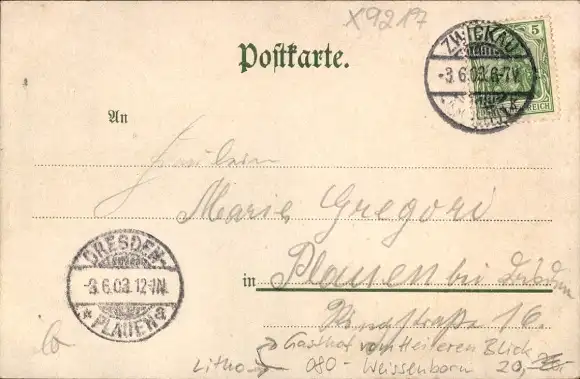 X9217
Postkarte.
ZWICKAU
5
-3.6.03.6-7V.
REICH
An
Fräulein
Marie Gregori
DRESDEN-
-3.6.03.12-1N.
* PLAUEN a
in Plauen bei Dresden
Ringstraße 16.
Gasthof vom Heiteren Blick
Litho 080 - Weissenborn 20,-